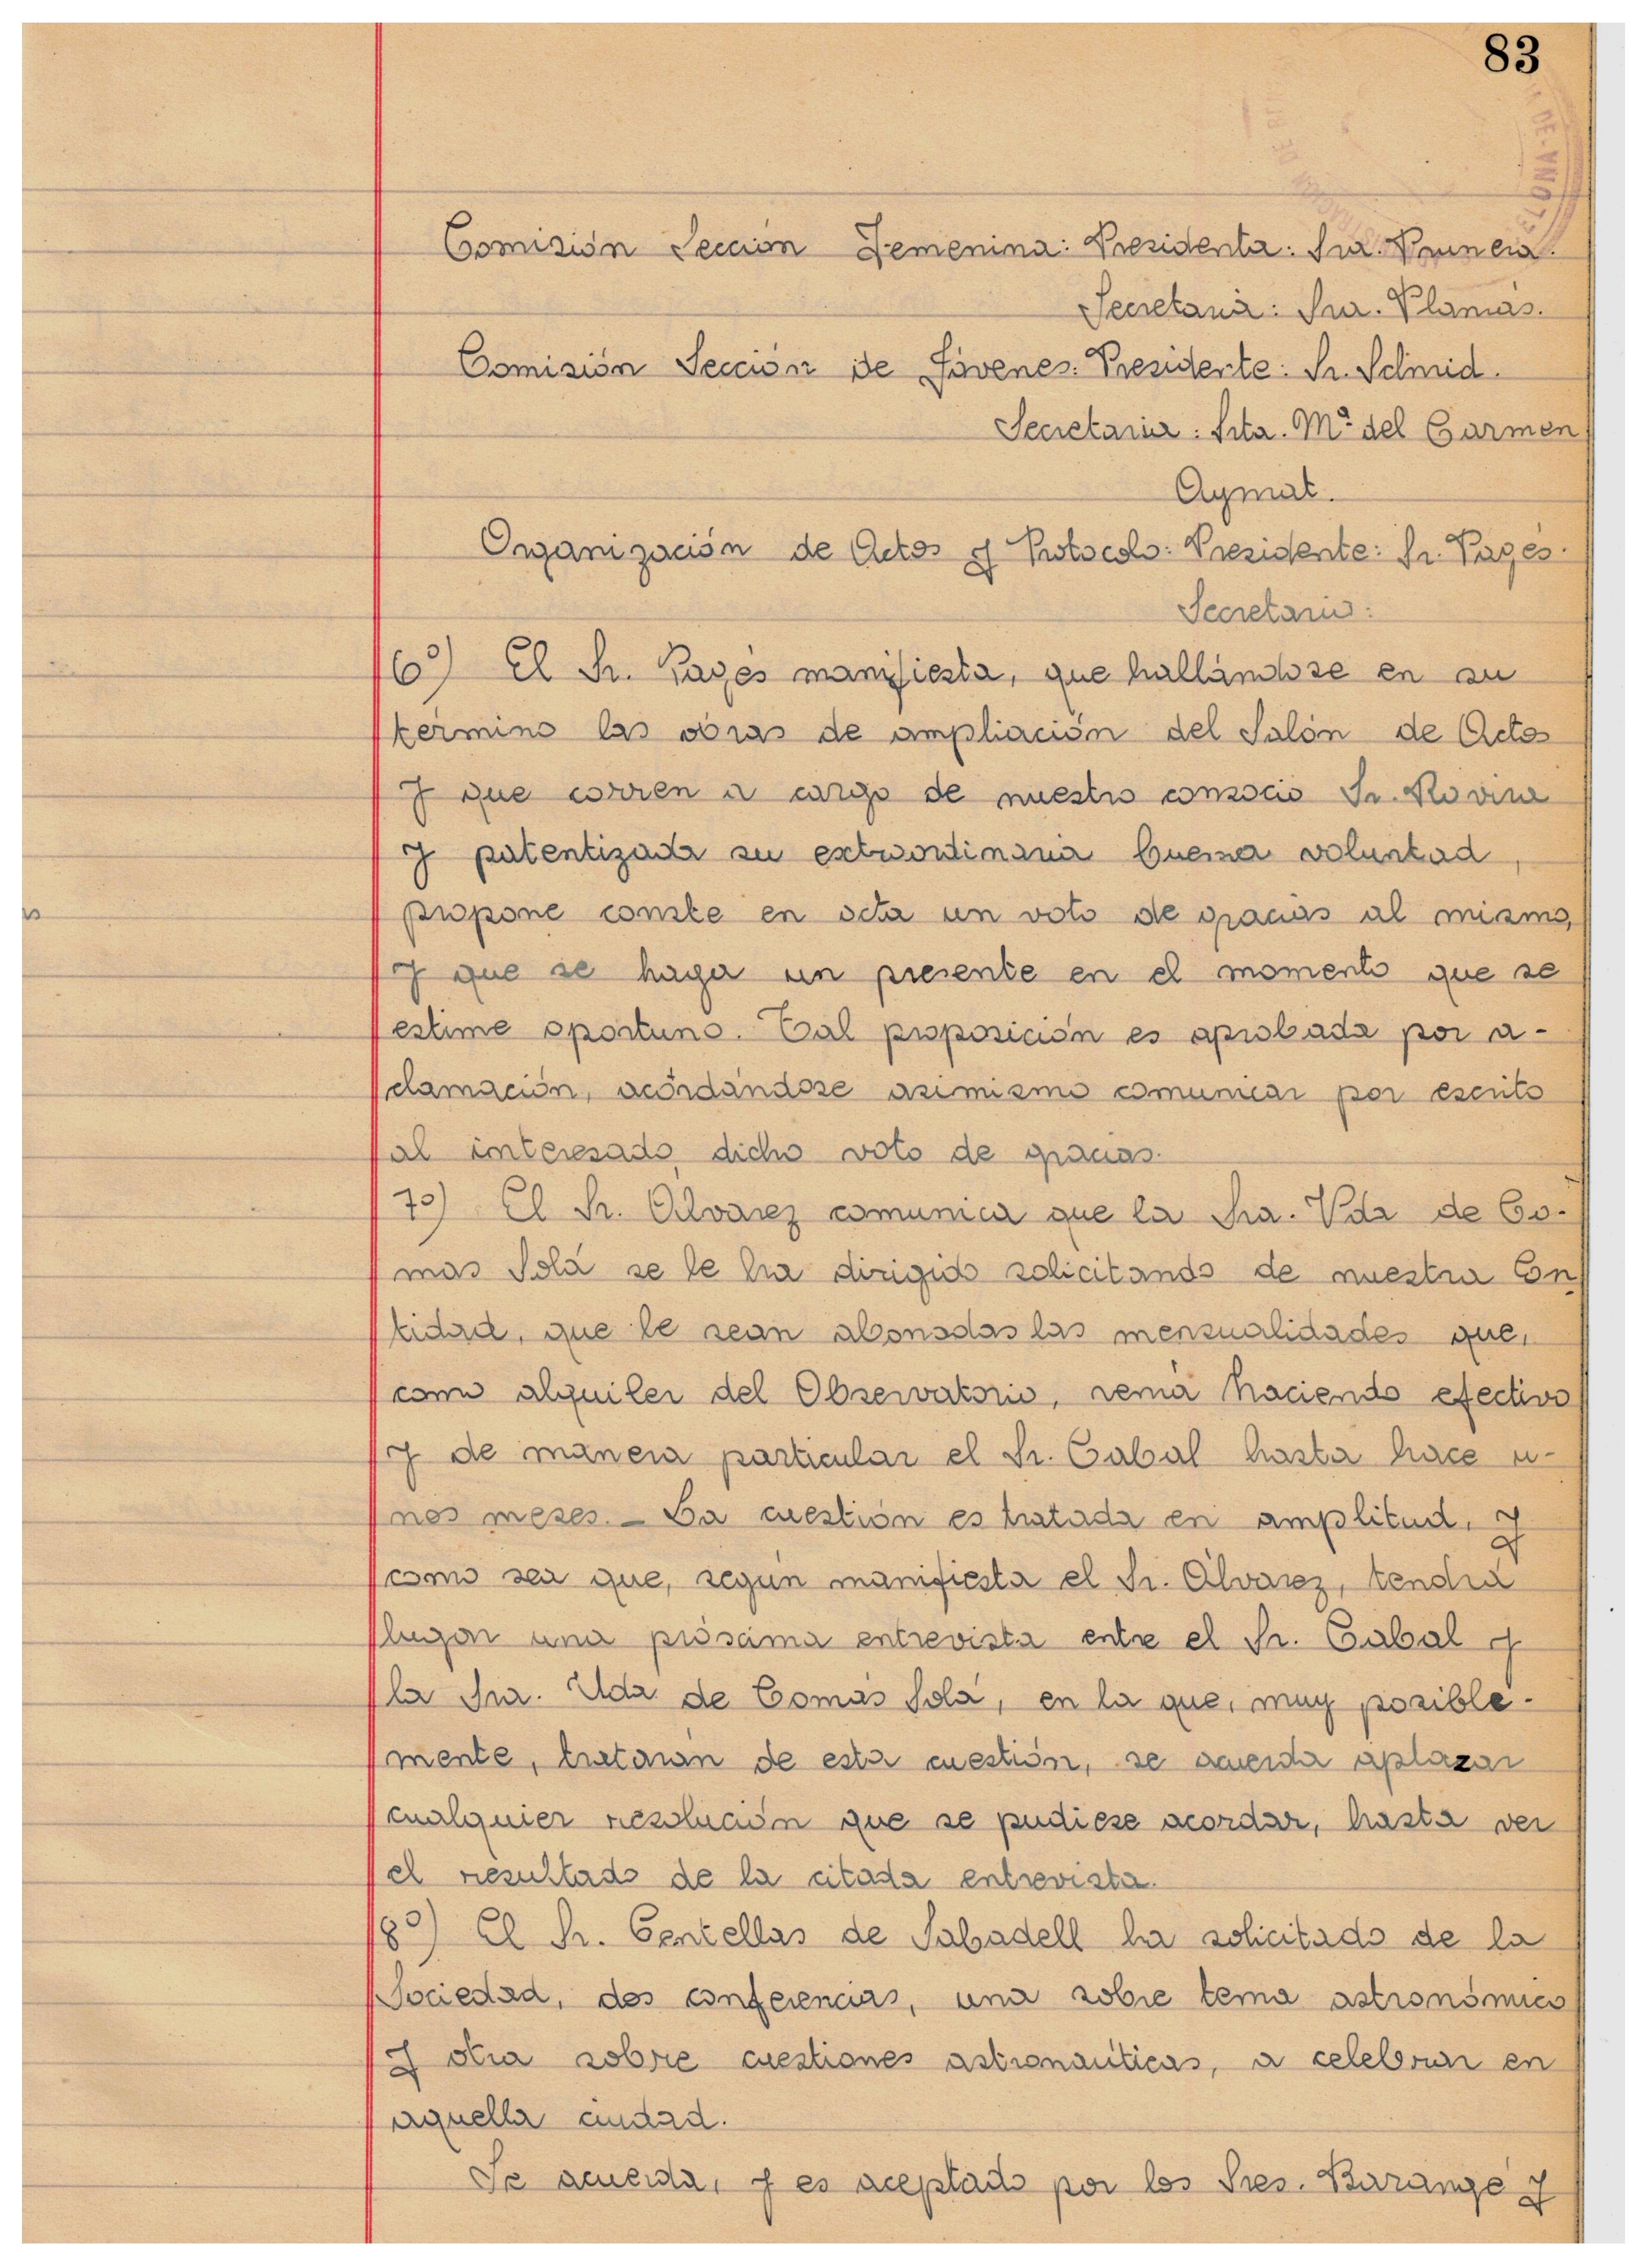 83
Comisión Sección Femenina: Presidenta: Sra. Prunera.
Secretaria: Sra. Planas.
Comisión Sección de Jóvenes: Presidente: Sr. Schmid.
Secretaria: Srta. Mª del Carmen
Aymat.
Organización de Actos y Protocolo: Presidente: Sr. Pagés.
Secretario:
6º) El Sr. Pagés manifiesta, que hallándose en su
término las obras de ampliación del Salón de Actos
y que corren a cargo de nuestro consocio Sr. Rovira
y patentizada su extraordinaria buena voluntad,
propone conste en acta un voto de gracias al mismo,
y que se haga un presente en el momento que se
estime oportuno. Tal proposición es aprobada por a-
clamación, acórdándose asimismo comunicar por escrito
al interesado, dicho voto de gracias.
7º) El Sr. Alvarez comunica que la Sra. Vda de Co-
mas Solá se le ha dirigido solicitando de nuestra En
tidad, que le sean abonadas las mensualidades que,
como alquiler del Observatorio, venía haciendo efectivo
y de manera particular el Sr. Cabal hasta hace u-
nos meses.- La cuestión es tratada en amplitud, y
como sea que, según manifiesta el Sr. Alvarez, tendrá
lugar una prósxima entrevista entre el Sr. Cabal y
la Sra. Vda de Comás Solá, en la que, muy posible-
mente, tratarán de esta cuestión, se acuerda aplazar
cualquier resolución que se pudiese acordar, hasta ver
el resultado de la citada entrevista.
8º) El Sr. Centellas de Sabadell ha solicitado de la
Sociedad, dos conferencias, una sobre tema astronómico
y otra sobre cuestiones astronaúticas, a celebrar en
aquella ciudad.
Se acuerda, y es aceptado por los Sres. Barangé y